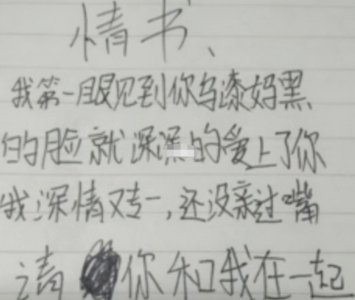 情书、
我第一眼见到你乌漆妈黑
的脸就深深的爱上了你
我深情又专一,还没亲过嘴
请你和我在一起